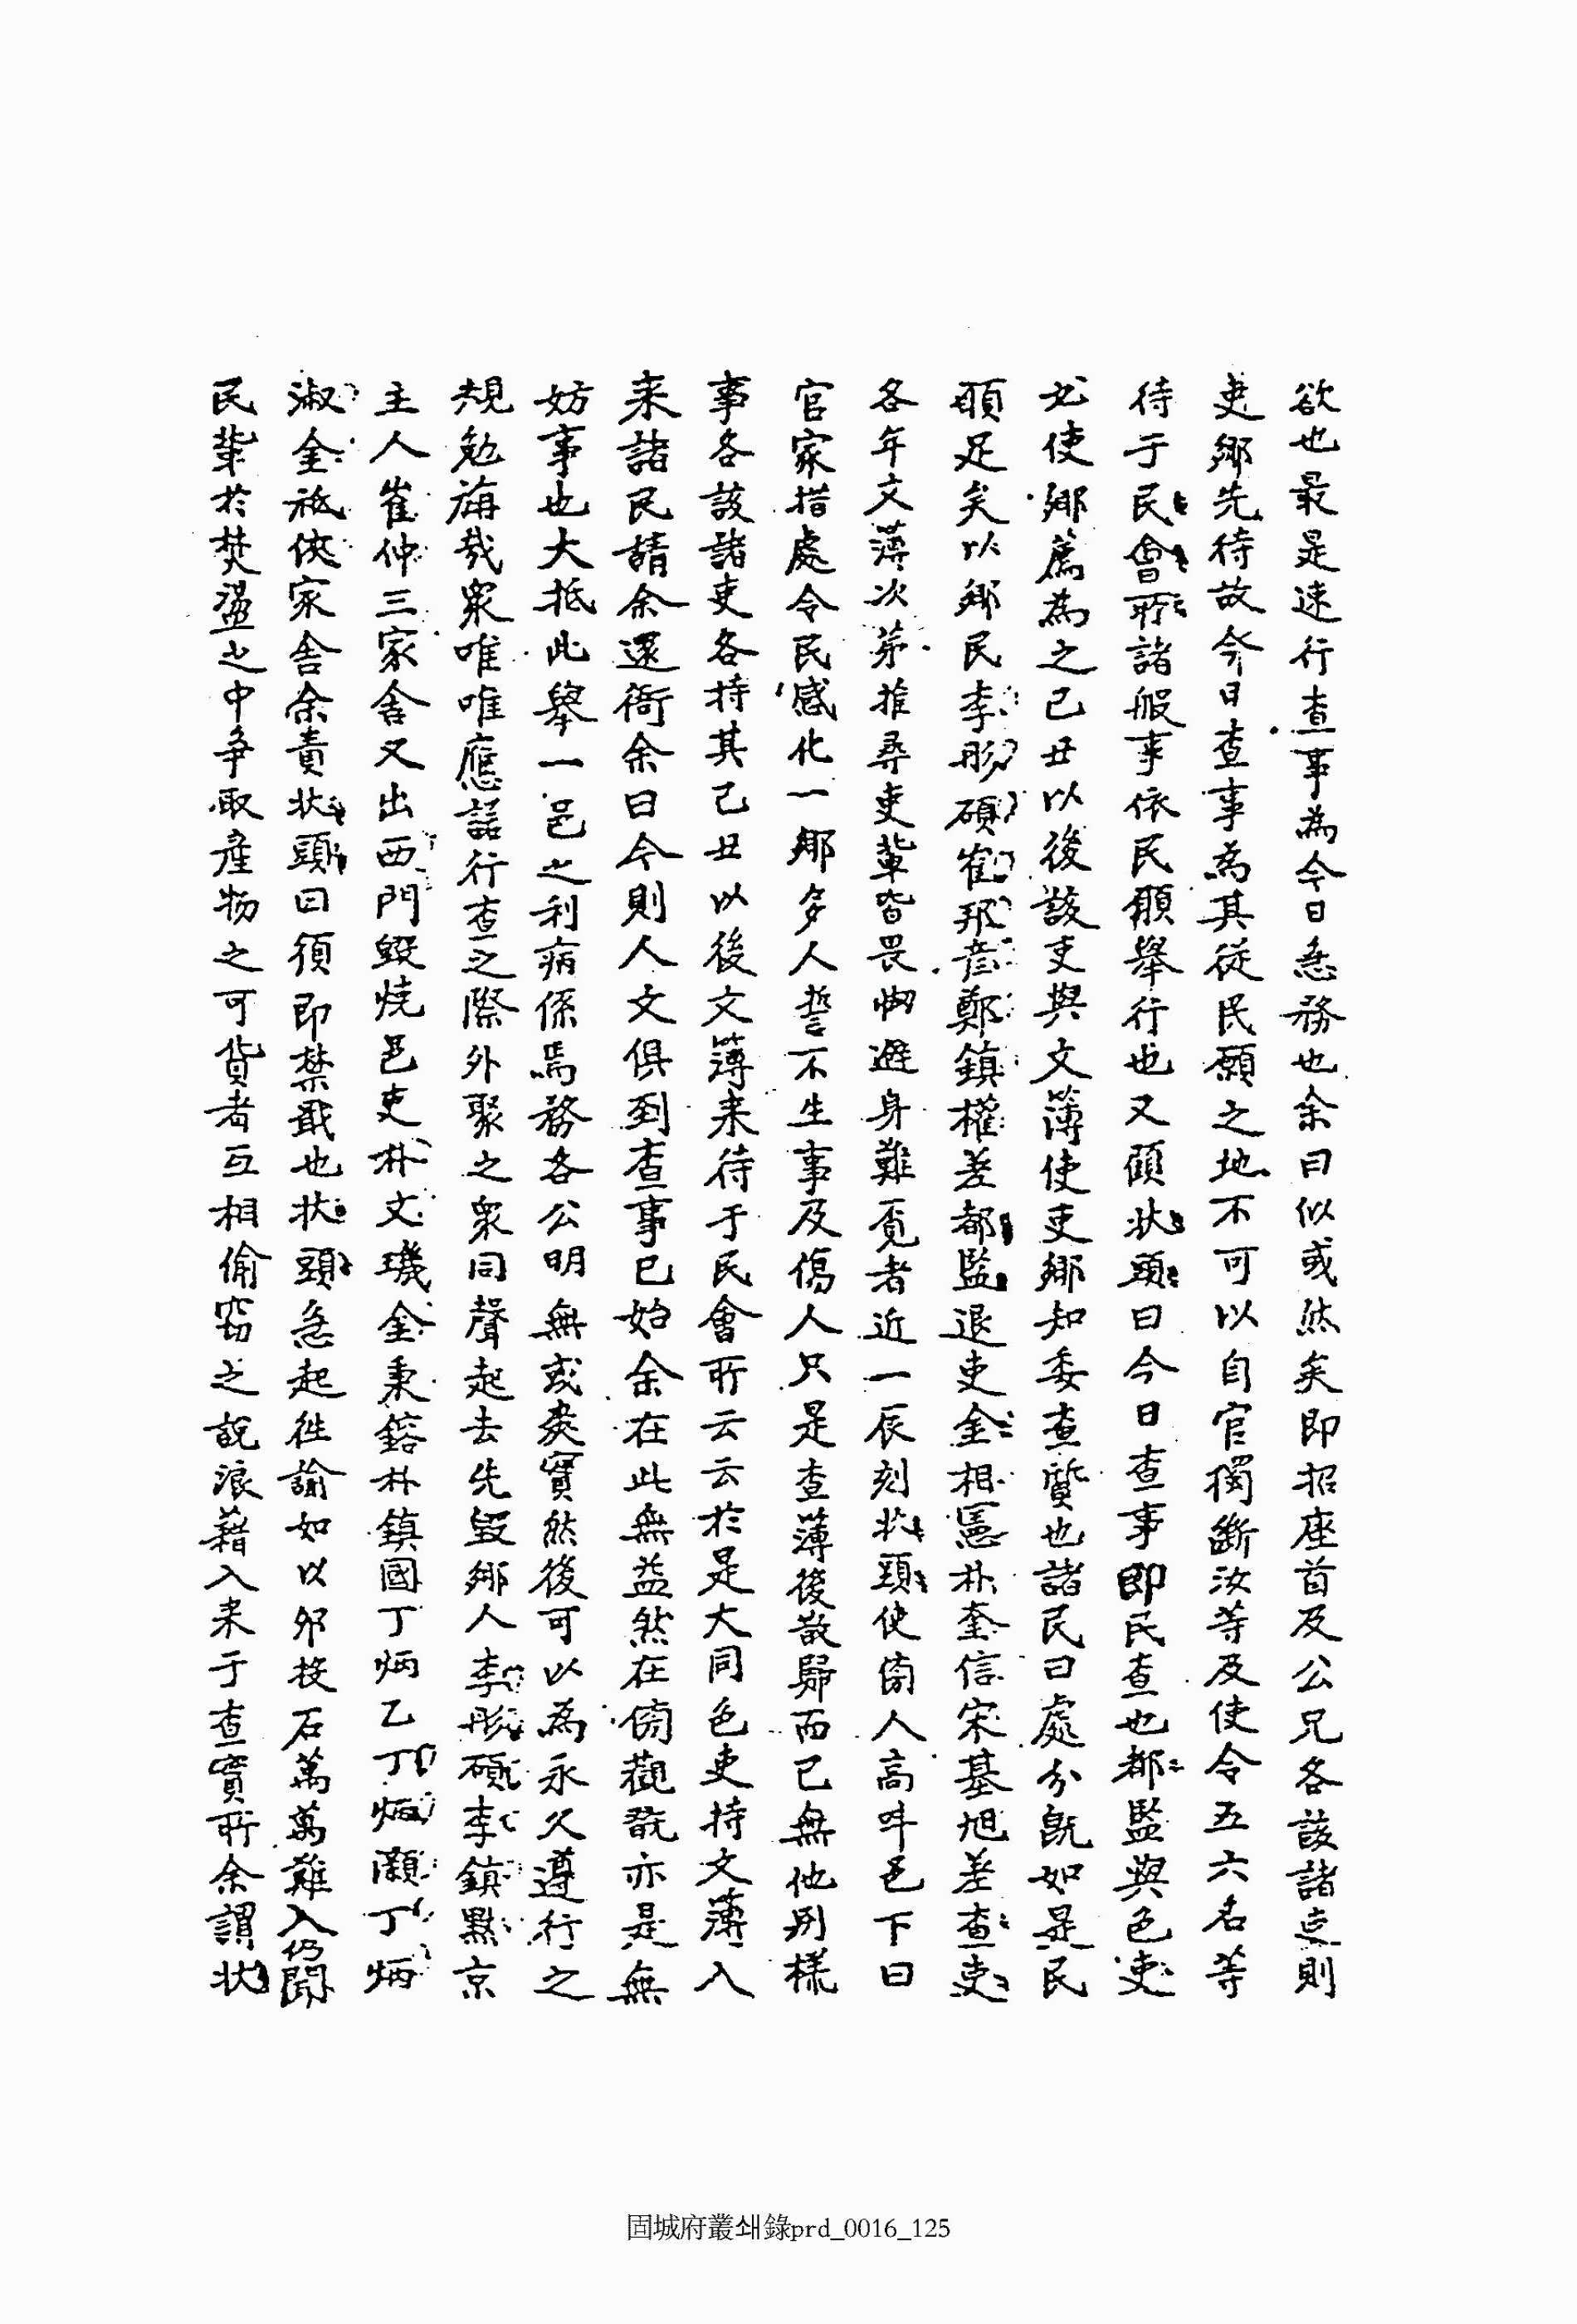 欲也最是速行查事為今日急務也余曰似或然矣即招座首及公兄各該諸吏則
吏鄉先待故今日查事為其從民願之地不可以自官獨斷汝等及使令五六名等
待于民會所諸般事依民願舉行也又顧狀頭曰今日查事即民查也都監與色吏
尤使鄉薦為之己丑以後該吏與文簿使吏鄉知委查質也諸民曰處分旣如是民
願足矣以鄉民李彤碩崔邦彥鄭鎮權差都監退吏金相憲朴奎信宋基旭差查吏
各年文簿次第推尋吏輩皆畏㤼避身難覓者近一辰刻狀頭使傍人高呌邑下曰
官家措處令民感化一鄉多人誓不生事及傷人只是查簿後散歸而已無他別樣
事各該諸吏各持其己丑以後文簿来待于民會所云云於是大同色吏持文簿入
来諸民請余還衙余曰今則人文俱到查事已始余在此無益然在傍觀翫亦是無
妨事也大抵此舉一邑之利病係焉務各公明無或爽實然後可以為永久遵行之
規勉旃哉衆唯唯應諾行查之際外聚之衆同聲起去先毀鄉人李彤碩李鎮黙京
主人崔仲三家舍又出西門毀燒邑吏朴文璣金秉鎔朴鎮國丁炳乙丁炳灝丁炳
淑金祗俠家舍余責狀頭曰須即禁戢也狀頭急起往諭如以卵投石萬萬難入仍聞
民輩於焚蕩之中爭取產物之可貨者互相偷竊之說浪藉入来于查實所余謂狀
固城府叢쇄錄prd_0016_125